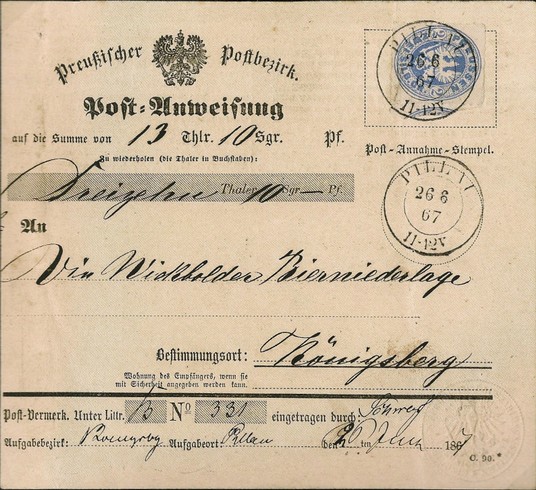 Preußischer Postbezirk.
PREUSSEN
PILLAU
26 6
67
11-12V
Post-Anweisung
auf die Summe von 13 Thlr. 10 Sgr. Pf.
Zu wiederholen (die Thaler in Buchstaben):
Dreizehn Thaler 10 Sgr — Pf.
Post-Annahme-Stempel.
PILLAU
26 6
67
11-12V
An
Die Wickbolder Bierniederlage
Bestimmungsort: Königsberg
Wohnung des Empfängers, wenn sie
mit Sicherheit angegeben werden kann.
Post-Vermerk. Unter Littr. B No 331 eingetragen durch:
Aufgabebezirk: Königsbg Aufgabeort: Pillau den 26 ten Juni 1867
C. 90.